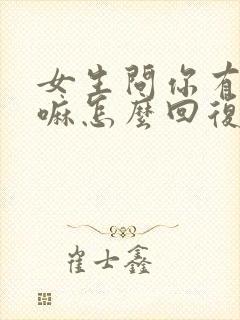 女生問你有
嘛怎麼回復
崔士鑫